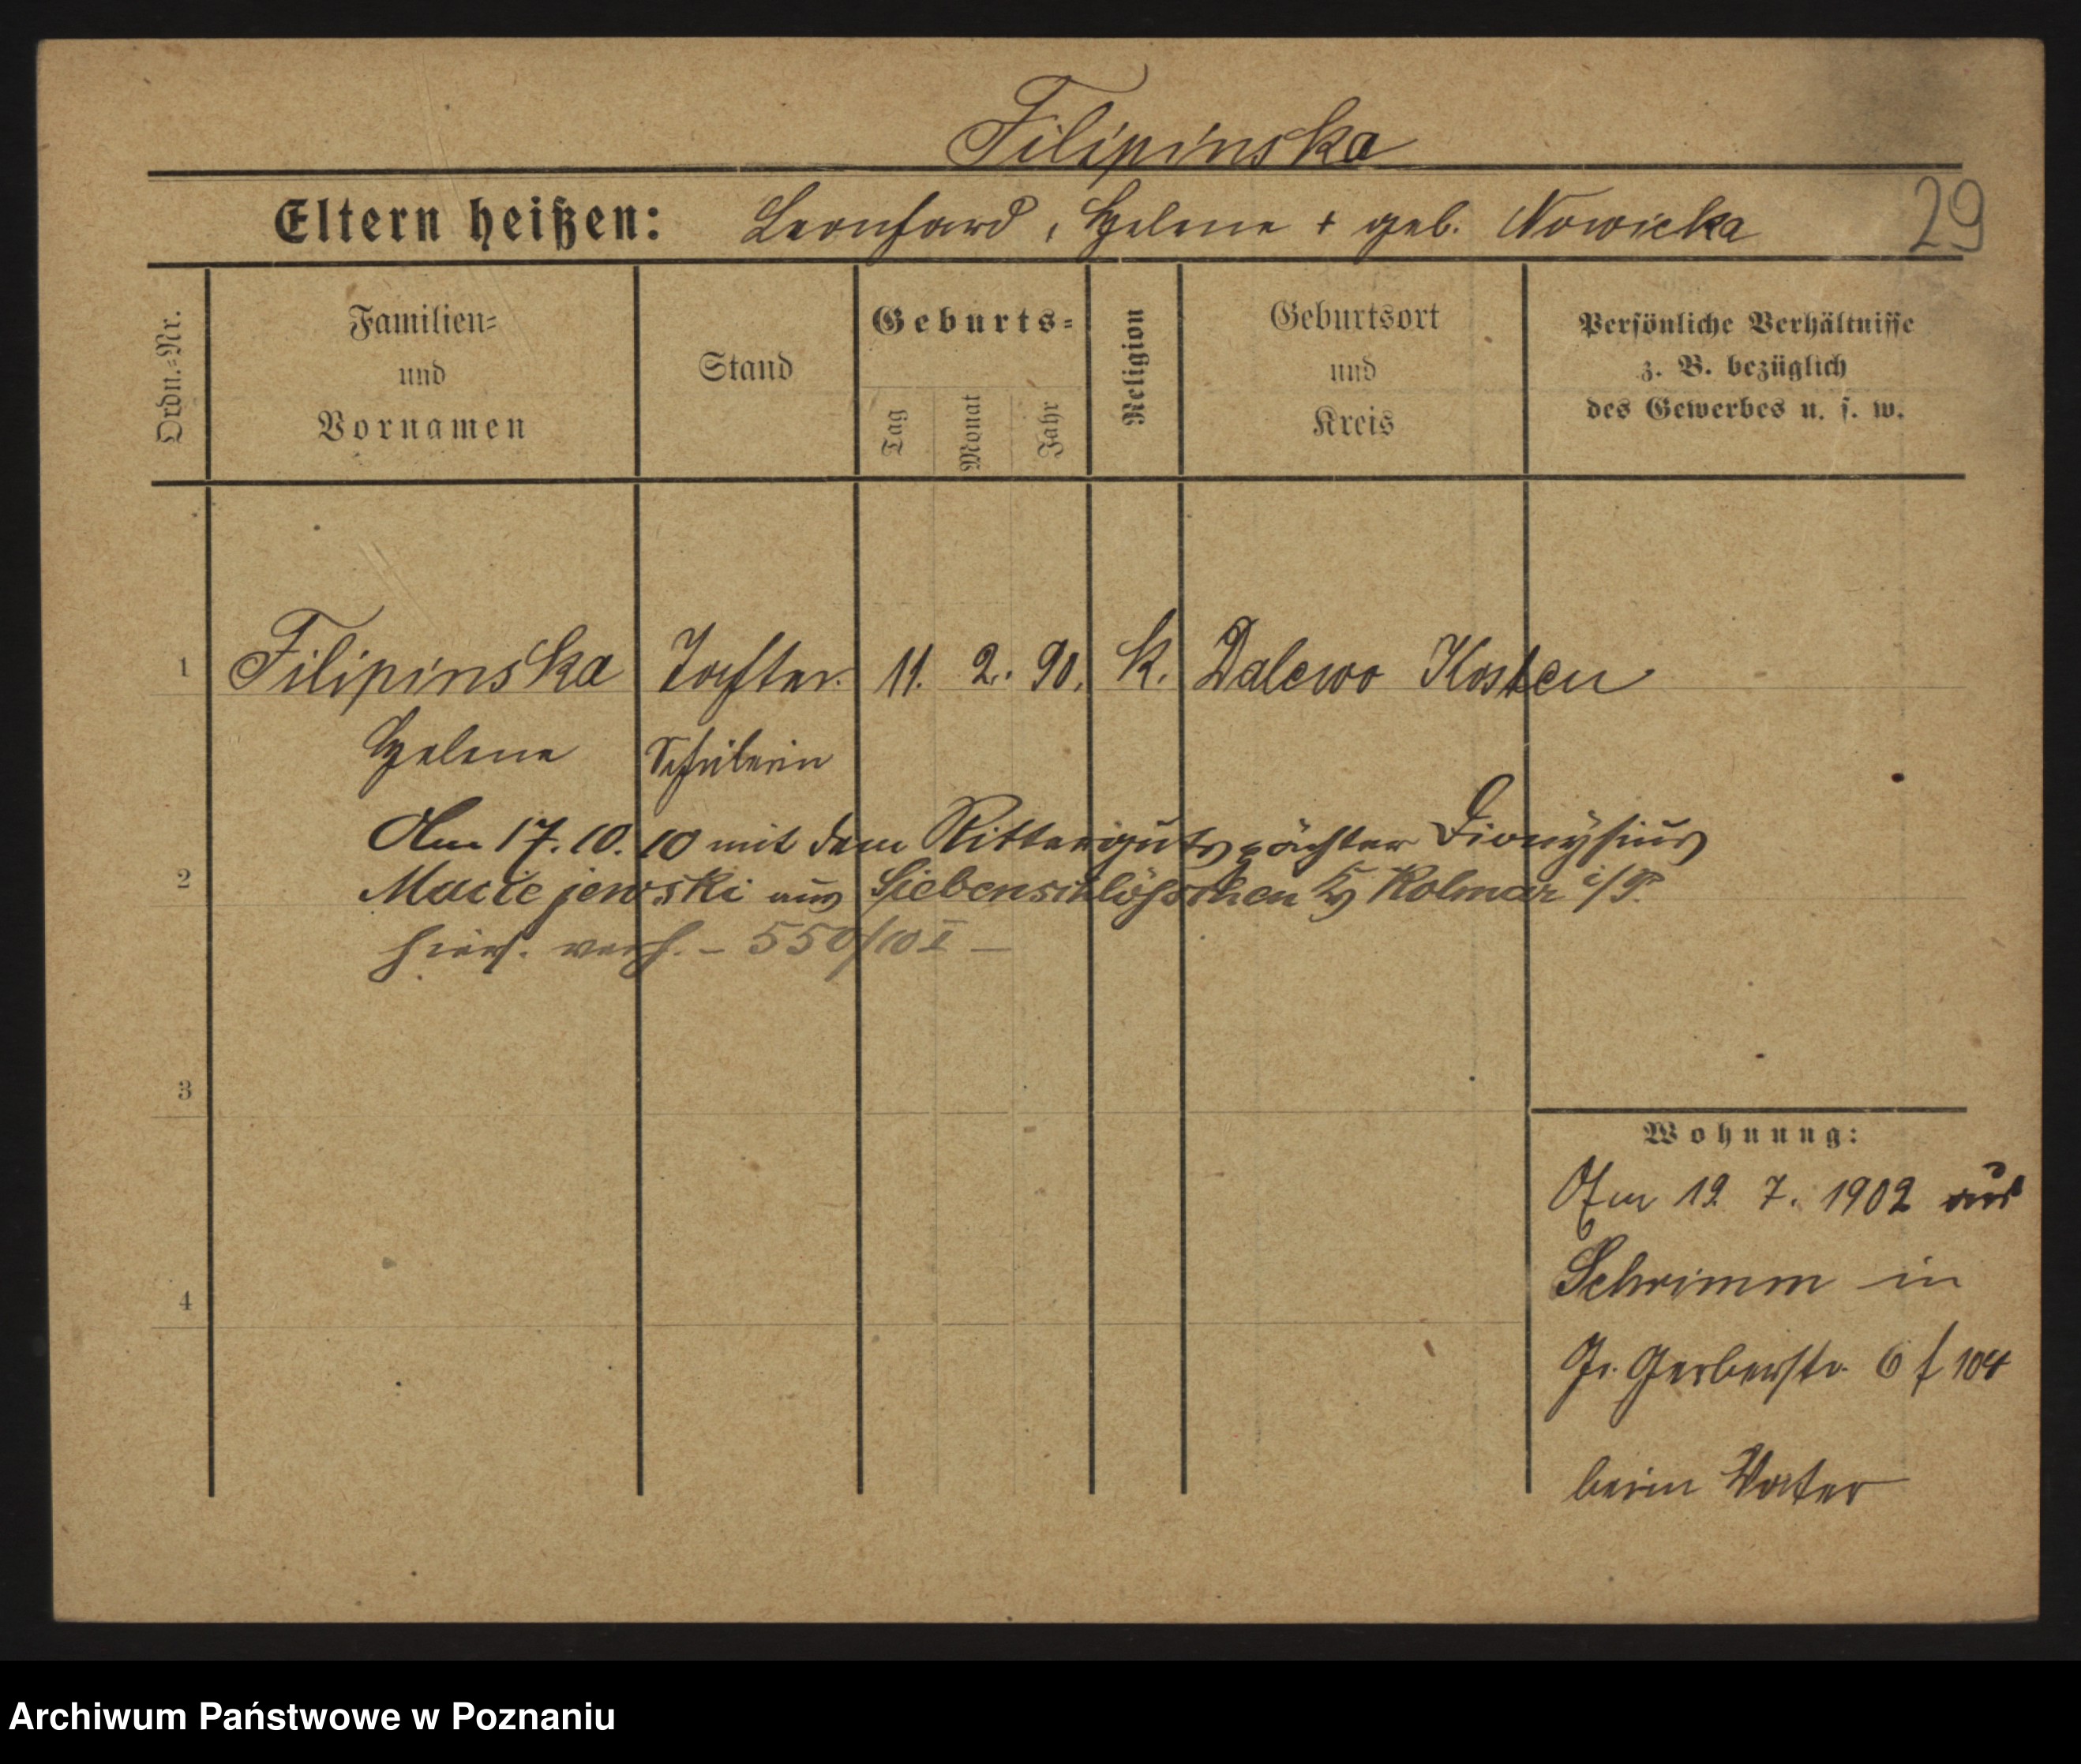 Filipinska
Eltern heißen: Leonhard, Helene + geb. Nowicka
29
Ordn.-Nr.
Familien-
und
Vornamen
Stand
Geburts-
Tag
Monat
Jahr
Religion
Geburtsort
und
Kreis
Persönliche Verhältnisse
z. B. bezüglich
des Gewerbes u. s. w.
1 Filipinska Tochter. 11. 2. 90. K. Dalewo Kosten
Helene Schülerin
Am 17.10.10 mit dem Rittergutspächter Dionysius
2 Maciejewski aus Siebenschlösschen Kr Kolmar i/P.
hier verh. – 550/10 I –
3
4
Wohnung:
Am 12 7. 1902 aus
Schrimm in
Gr. Gerberstr. 6 f 104
beim Vater
Archiwum Państwowe w Poznaniu